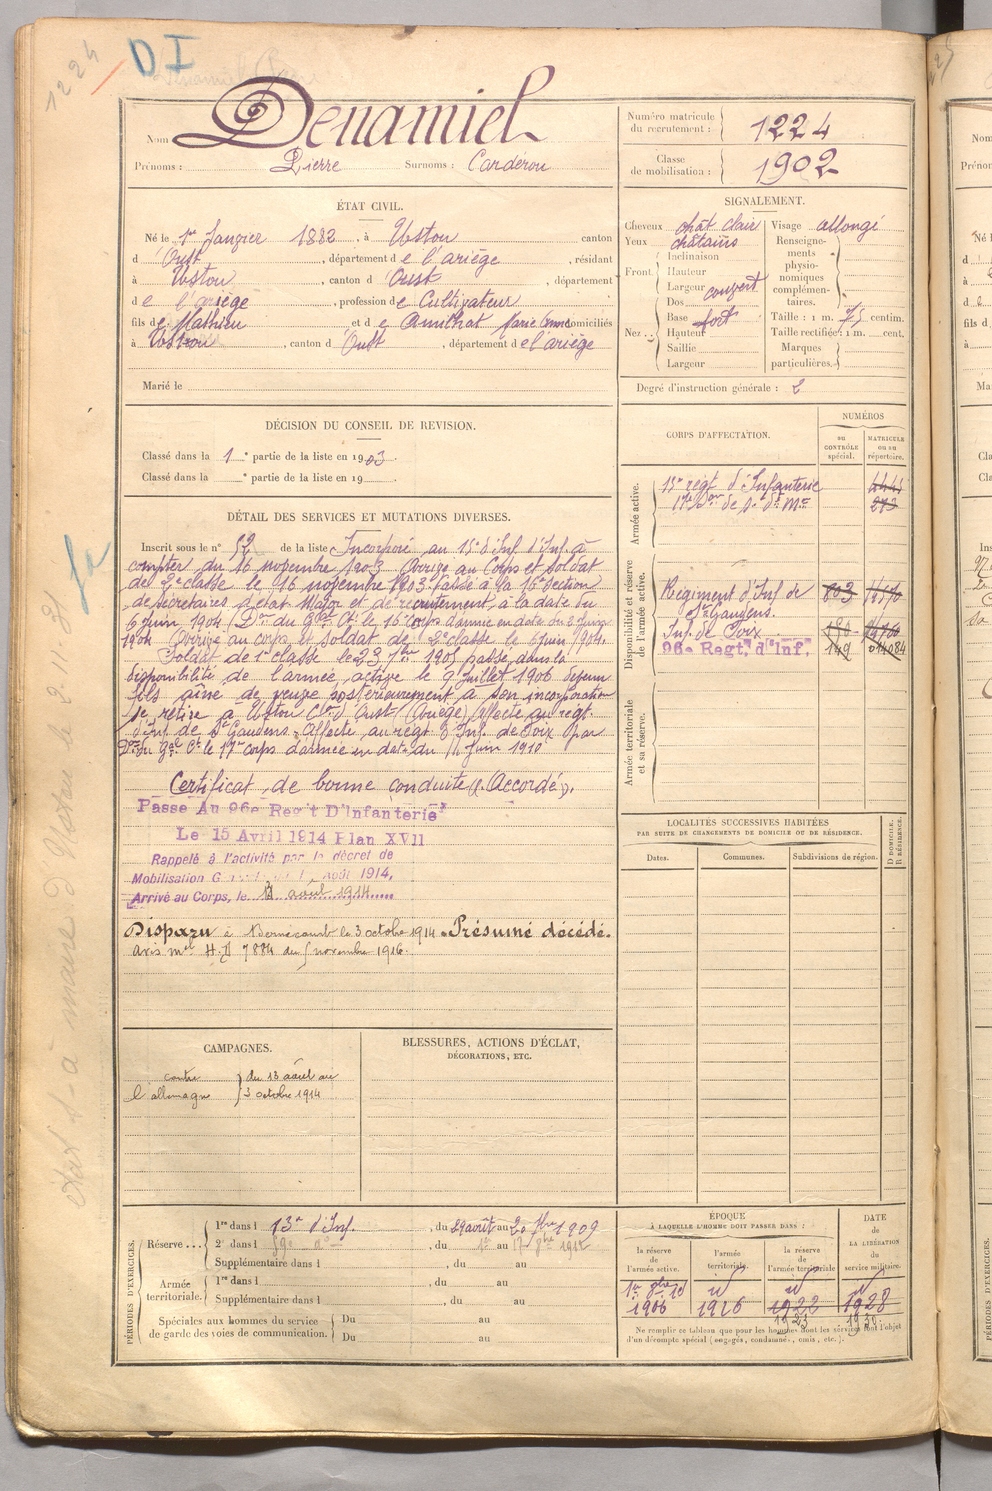 1224
DI
Nom Denamiel
Prénoms : Pierre Surnoms : Cardérou
Numéro matricule du recrutement : 1224
Classe de mobilisation : 1902
ÉTAT CIVIL.
Né le 1er Janvier 1882, à Ustou canton
d'Oust, département de l'ariège, résidant
à Ustou, canton d'Oust, département
de l'ariège, profession de Cultivateur
fils de Mathieu et de Amilhat Marie Anne domiciliés
à Ustou, canton d'Oust, département de l'ariège
Marié le
SIGNALEMENT.
Cheveux chât clair Visage allongé
Yeux châtains
Front. Inclinaison
Hauteur
Largeur couvert
Nez Dos
Base fort
Hauteur
Saillie
Largeur
Renseignements physionomiques complémentaires.
Taille : 1 m. 75 centim.
Taille rectifiée : 1 m. cent.
Marques particulières.
Degré d'instruction générale : 2
DÉCISION DU CONSEIL DE REVISION.
Classé dans la 1e partie de la liste en 1903.
Classé dans la e partie de la liste en 19
DÉTAIL DES SERVICES ET MUTATIONS DIVERSES.
Inscrit sous le n° 52 de la liste Incorporé au 15e d'Inf. d'Inf. à
compter du 16 novembre 1903 Arrivé au Corps et soldat
de 2e classe le 16 novembre 1903. Passé à la 16e Section
de secrétaires d'état Major et de recrutement, à la date du
6 juin 1904 (Don du Gal Ct le 16e Corps d'armée en date du 2 Juin
1904 Arrivé au corps et Soldat de 2e classe le 6 juin 1904.
Soldat de 1re classe le 23 7bre 1905 passé dans la
disponibilité de l'armée active le 9 juillet 1906 devenu
fils aîné de veuve postérieurement à son incorporation
Se retire à Ustou Cton d'Oust (Ariège) Affecté au régt.
d'Inf. de St Gaudens. Affecté au régt d'Inf. de Foix par
Don du Gal Ct le 17e corps d'armée en date du 11 Juin 1910
Certificat de bonne conduite « Accordé ».
Passé Au 96e Reg't D'Infanterie
Le 15 Avril 1914 Plan XVII
Rappelé à l'activité par le décret de
Mobilisation Générale du 1er août 1914,
Arrivé au Corps, le 13 août 1914
Disparu à Bernécourt le 3 octobre 1914. Présumé décédé.
avis mel H.D 7884 du 5 novembre 1916
CORPS D'AFFECTATION.
NUMÉROS
DU CONTRÔLE spécial.
MATRICULE ou au répertoire.
Armée active.
15e régt d'Infanterie
17e Son de S. d'E. Mor 273
Disponibilité et réserve de l'armée active.
Régiment d'Inf de St Gaudens. 803
Inf. de Foix
96e Regt. d'Inf. 149 014084
Armée territoriale et sa réserve.
LOCALITÉS SUCCESSIVES HABITÉES
PAR SUITE DE CHANGEMENTS DE DOMICILE OU DE RÉSIDENCE.
Dates. Communes. Subdivisions de région. D DOMICILE. R RÉSIDENCE.
CAMPAGNES.
contre l'allemagne } du 13 août au
3 octobre 1914
BLESSURES, ACTIONS D'ÉCLAT,
DÉCORATIONS, ETC.
PÉRIODES D'EXERCICES.
Réserve... 1re dans l 13e d'Inf., du 29 août au 20 7bre 1909
2e dans l 59e do, du 1er au 17 8bre 1912
Supplémentaire dans l, du au
Armée territoriale. 1re dans l, du au
Supplémentaire dans l, du au
Spéciales aux hommes du service de garde des voies de communication. Du au
Du au
ÉPOQUE
À LAQUELLE L'HOMME DOIT PASSER DANS :
la réserve de l'armée active. l'armée territoriale. la réserve de l'armée territoriale
DATE DE LA LIBÉRATION du service militaire.
1er 8bre
1906 1916 1922 1928
1923
Ne remplir ce tableau que pour les hommes dont les services font l'objet
d'un décompte spécial (engagés, condamnés, omis, etc.).